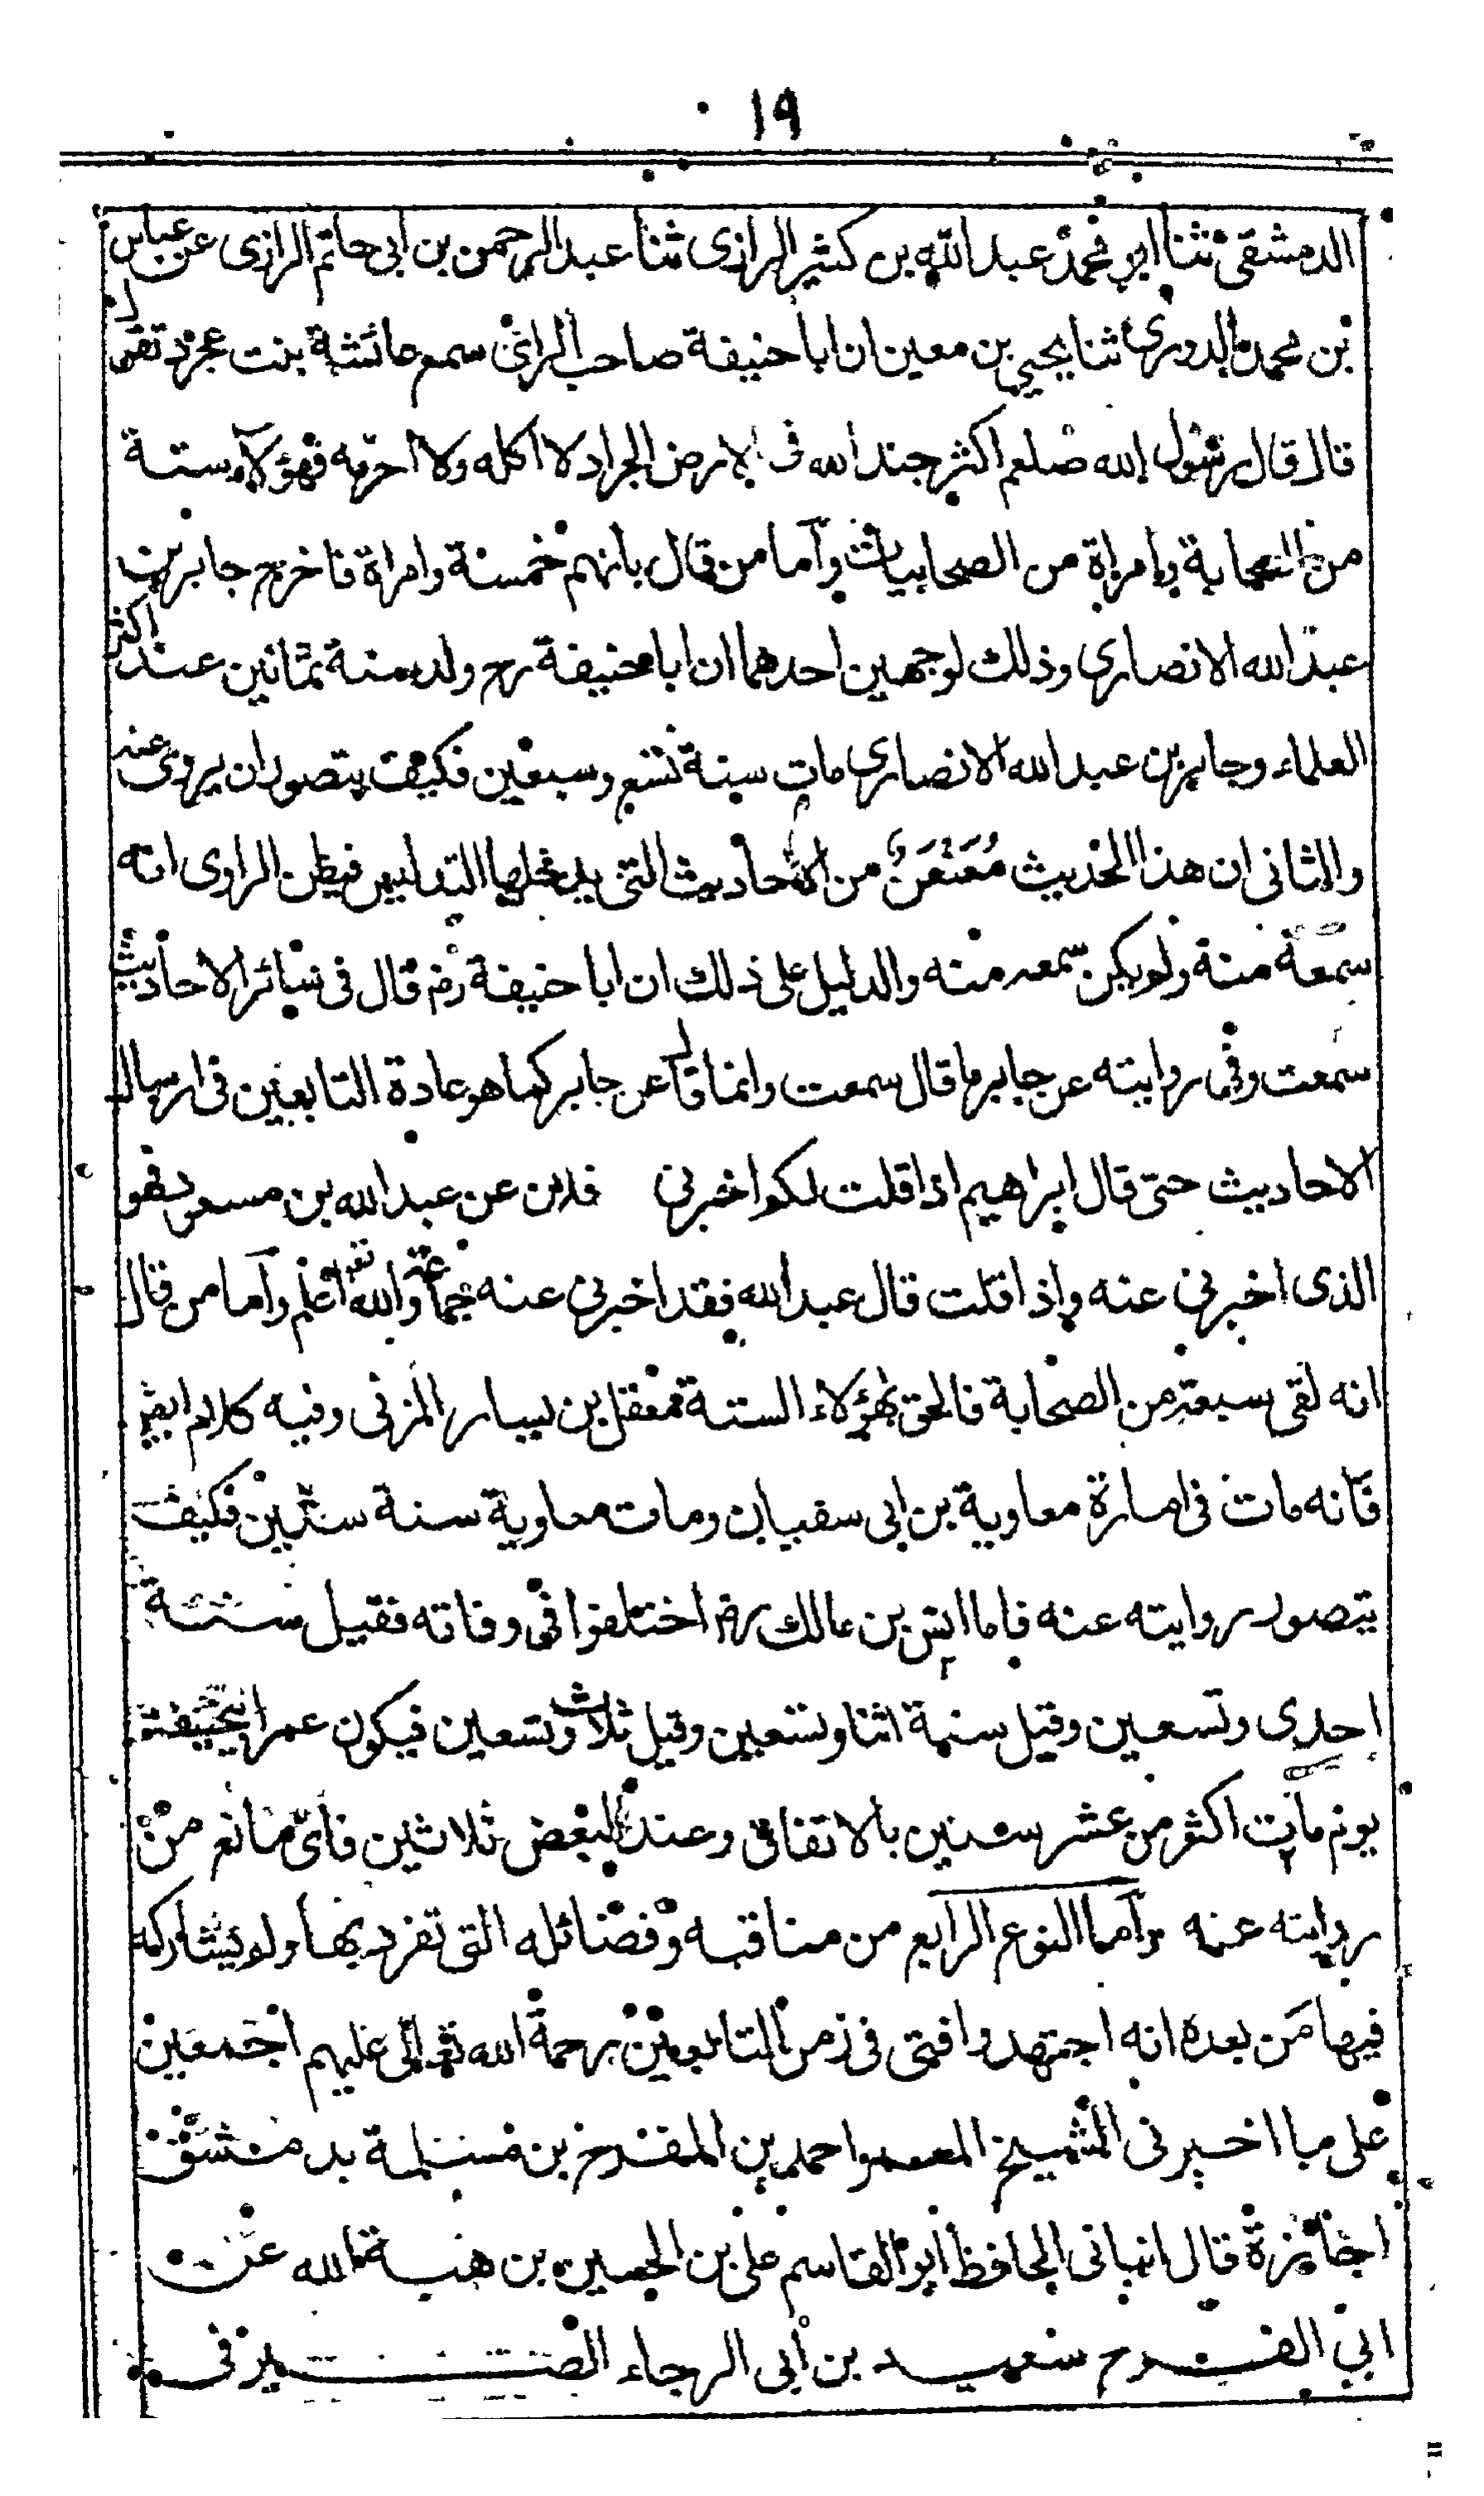 ١٩
الدمشقى ثنا ابو محمد عبد الله بن كثير الرازى ثنا عبد الرحمن بن ابى حاتم الرازى عن عباس
بن محمد الدورى ثنا يحيى بن معين ان ابا حنيفة صاحب الرائ سمع عائشة بنت عجرد تقول
قال قال رسول الله صلعم اكثر جند الله فى الارض الجراد لا اكله ولا احرمه فهؤلاء ستة
من الصحابة وامراة من الصحابيات وآما من قال بانهم خمسة وامراة فاخرج جابر بن
عبد الله الانصارى وذلك لوجهين احدهما ان ابا حنيفة رح ولد سنة ثمانين عند اكثر
العلماء وجابر بن عبد الله الانصارى مات سنة تسع وسبعين فكيف يتصور ان يروى عنه
والثانى ان هذا الحديث مُعَنْعَنٌ من الاحاديث التى يدخلها التدليس فيظن الراوى انه
سمعه منه ولو يكن سمعه منه والدليل على ذلك ان ابا حنيفة رض قال فى سائر الاحاديث
سمعت وفى روايته عن جابر ما قال سمعت وانما قال عن جابر كما هو عادة التابعين فى ارسال
الاحاديث حتى قال ابراهيم اذا قلت لكو اخبرنى فلان عن عبد الله بن مسعود فهو
الذى اخبرنى عنه واذا قلت قال عبد الله فقد اخبرنى عنه جماعة والله تعه اعلم وآما من قال
انه لقى سبعة من الصحابة فالحق بهؤلاء الستة معقل بن يسار المزنى وفيه كلام ايضا
فانه مات فى امارة معاوية بن ابى سفيان ومات معاوية سنة ستين فكيف
يتصور روايته عنه فاما انس بن مالك رض اختلفوا فى وفاته فقيل سنة
احدى وتسعين وقيل سنة اثنا وتسعين وقيل ثلاث وتسعين فيكون عمر ابيحنيفة
يوم مات اكثر من عشر سنين بالاتفاق وعند البعض ثلاثين فاى مانع من
روايته عنه وآما النوع الرابع من مناقبه وفضائله التى تفرد بها ولو يشاركه
فيها من بعده انه اجتهد وافتى فى زمن التابعين رحمة الله تعالى عليهم اجمعين
على ما اخبرنى الشيخ المعمر احمد بن المفرج بن مسلمة بدمشق
اجازة قال انبانى الحافظ ابو القاسم على بن الحسين بن هبة الله عن
ابى الفرج سعيد بن ابى الرجاء الصيرفى